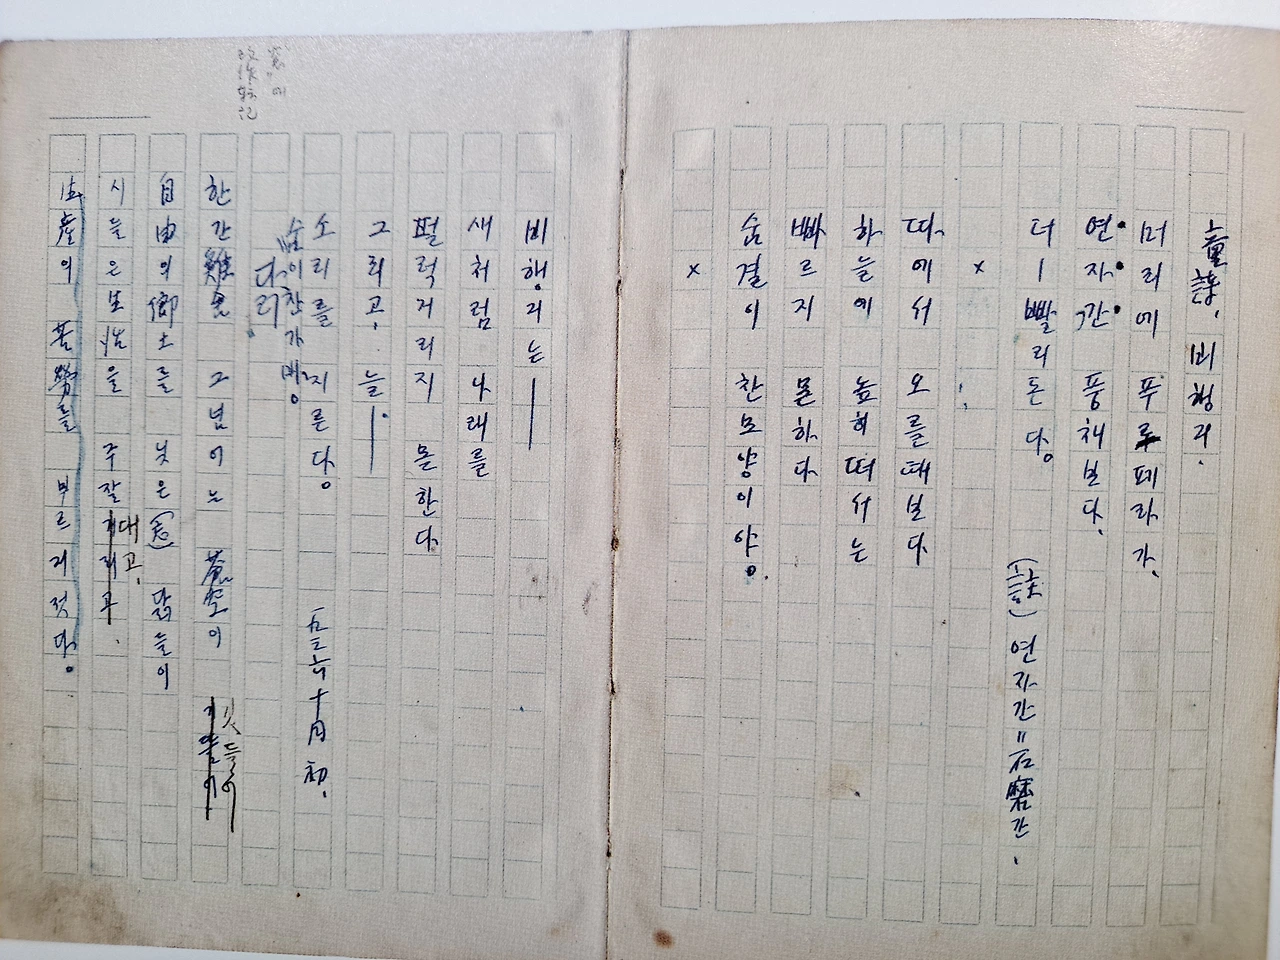 童謠. 비행긔.
머리에 푸로페라가,
연자간, 풍채보다.
더ㅣ빨리돈다。 (註) 연자간=石磨간.
×
따에서 오를때보다
하늘에 높히떠서는
빠르지 몯하다
숨결이 찬모양이야。
×
비행긔는—
새처럼 나래를
펄럭거리지 몯한다
그리고, 늘—
소리를 지른다。 一九三六、十月初.
숨이찬가배。
"窓"에
改作転記
닭
한간 鷄舍 그넘어는 蒼空이 깃들어
自由의鄕土를 닞은(忘) 닭들이
시들은生活을 주잘대고,
生産의 苦勞를 부르지젓다。